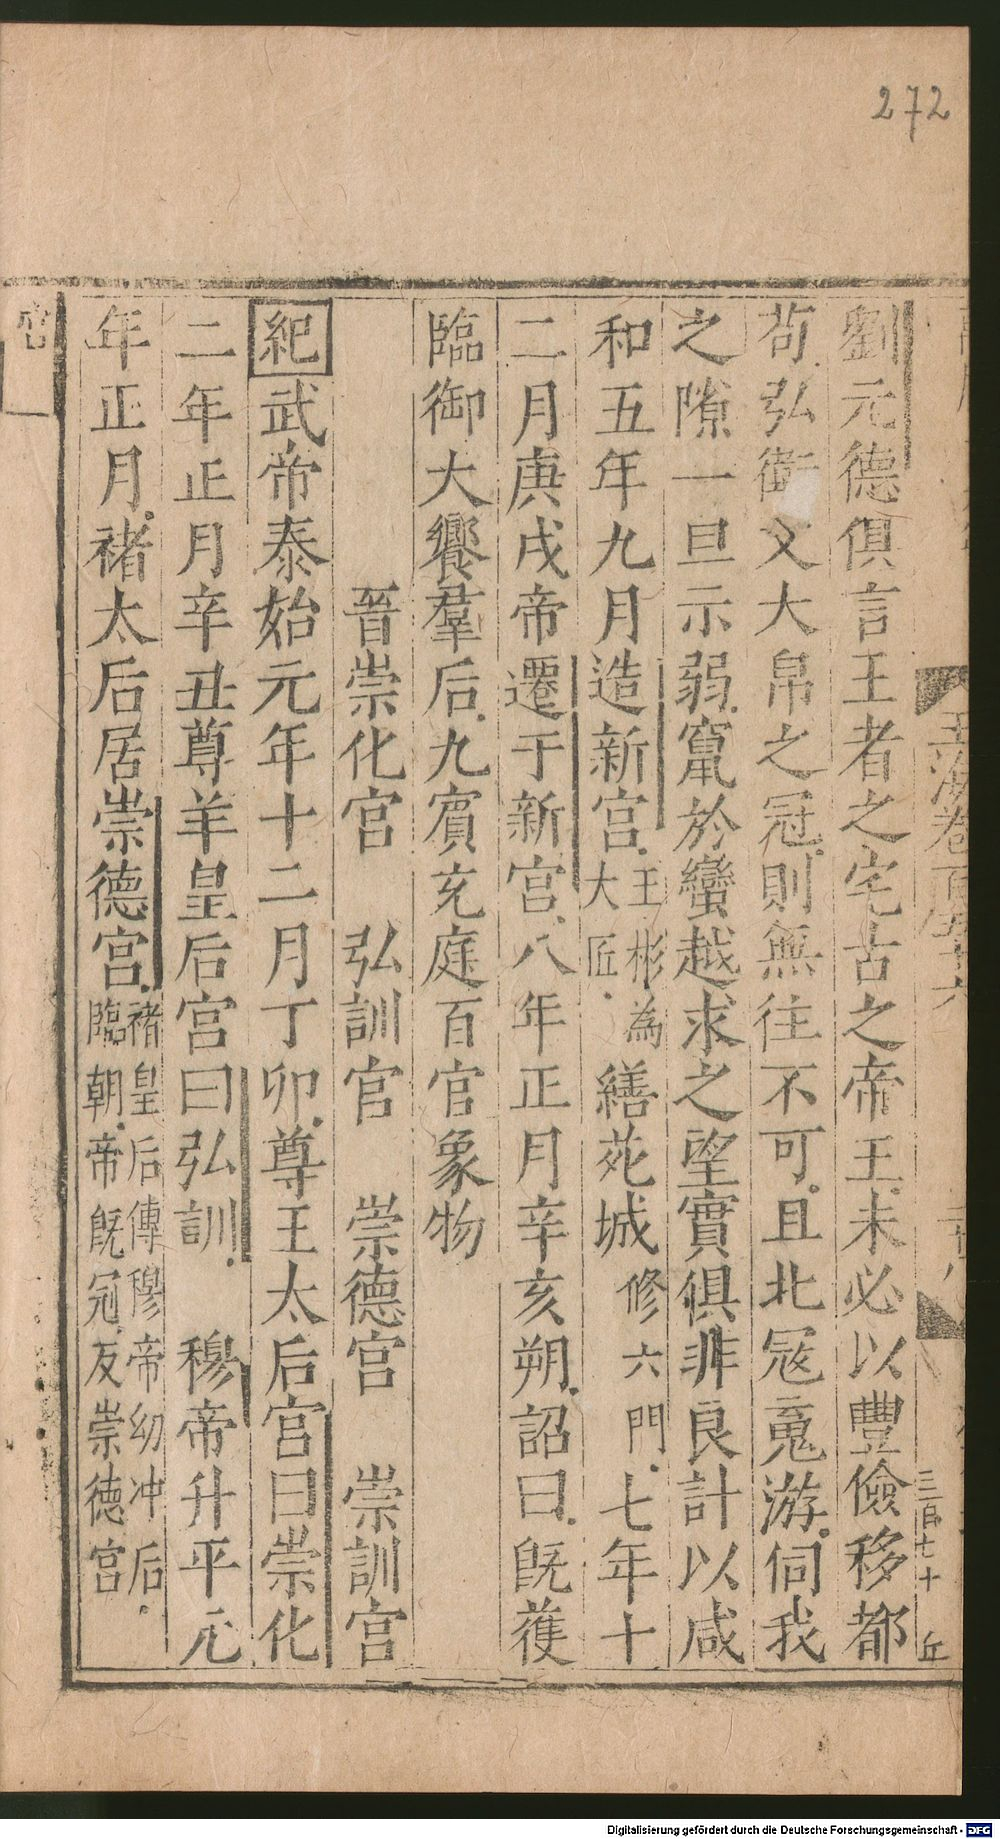 272
劉元德俱言王者之宅古之帝王未必以豐儉移都
苟弘衛文大帛之冠則無往不可且北冦䰟游伺我
之隙一旦示弱竄於蠻越求之望實俱非良計以咸
和五年九月造新宫王彬為大匠繕苑城修六門七年十
二月庚戌帝遷于新宫八年正月辛亥朔詔曰旣蒦
臨御大饗羣后九賓充庭百官象物
晉崇化宫 弘訓宫 崇德宫 崇訓宫
紀武帝泰始元年十二月丁卯尊王太后宫曰崇化
二年正月辛丑尊羊皇后宫曰弘訓 穆帝升平元
年正月禇太后居崇德宫禇皇后傳穆帝幼冲后臨朝帝旣冠反崇德宫
玉海卷百五十六
三百七十
丘
Digitalisierung gefördert durch die Deutsche Forschungsgemeinschaft - DFG